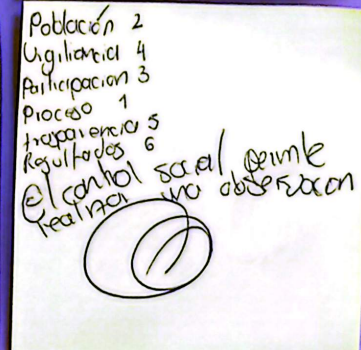 Población 2
Vigilancia 4
Participacion 3
Proceso 1
trasparencia 5
Resultados 6
El control social permite
realizar una observacion